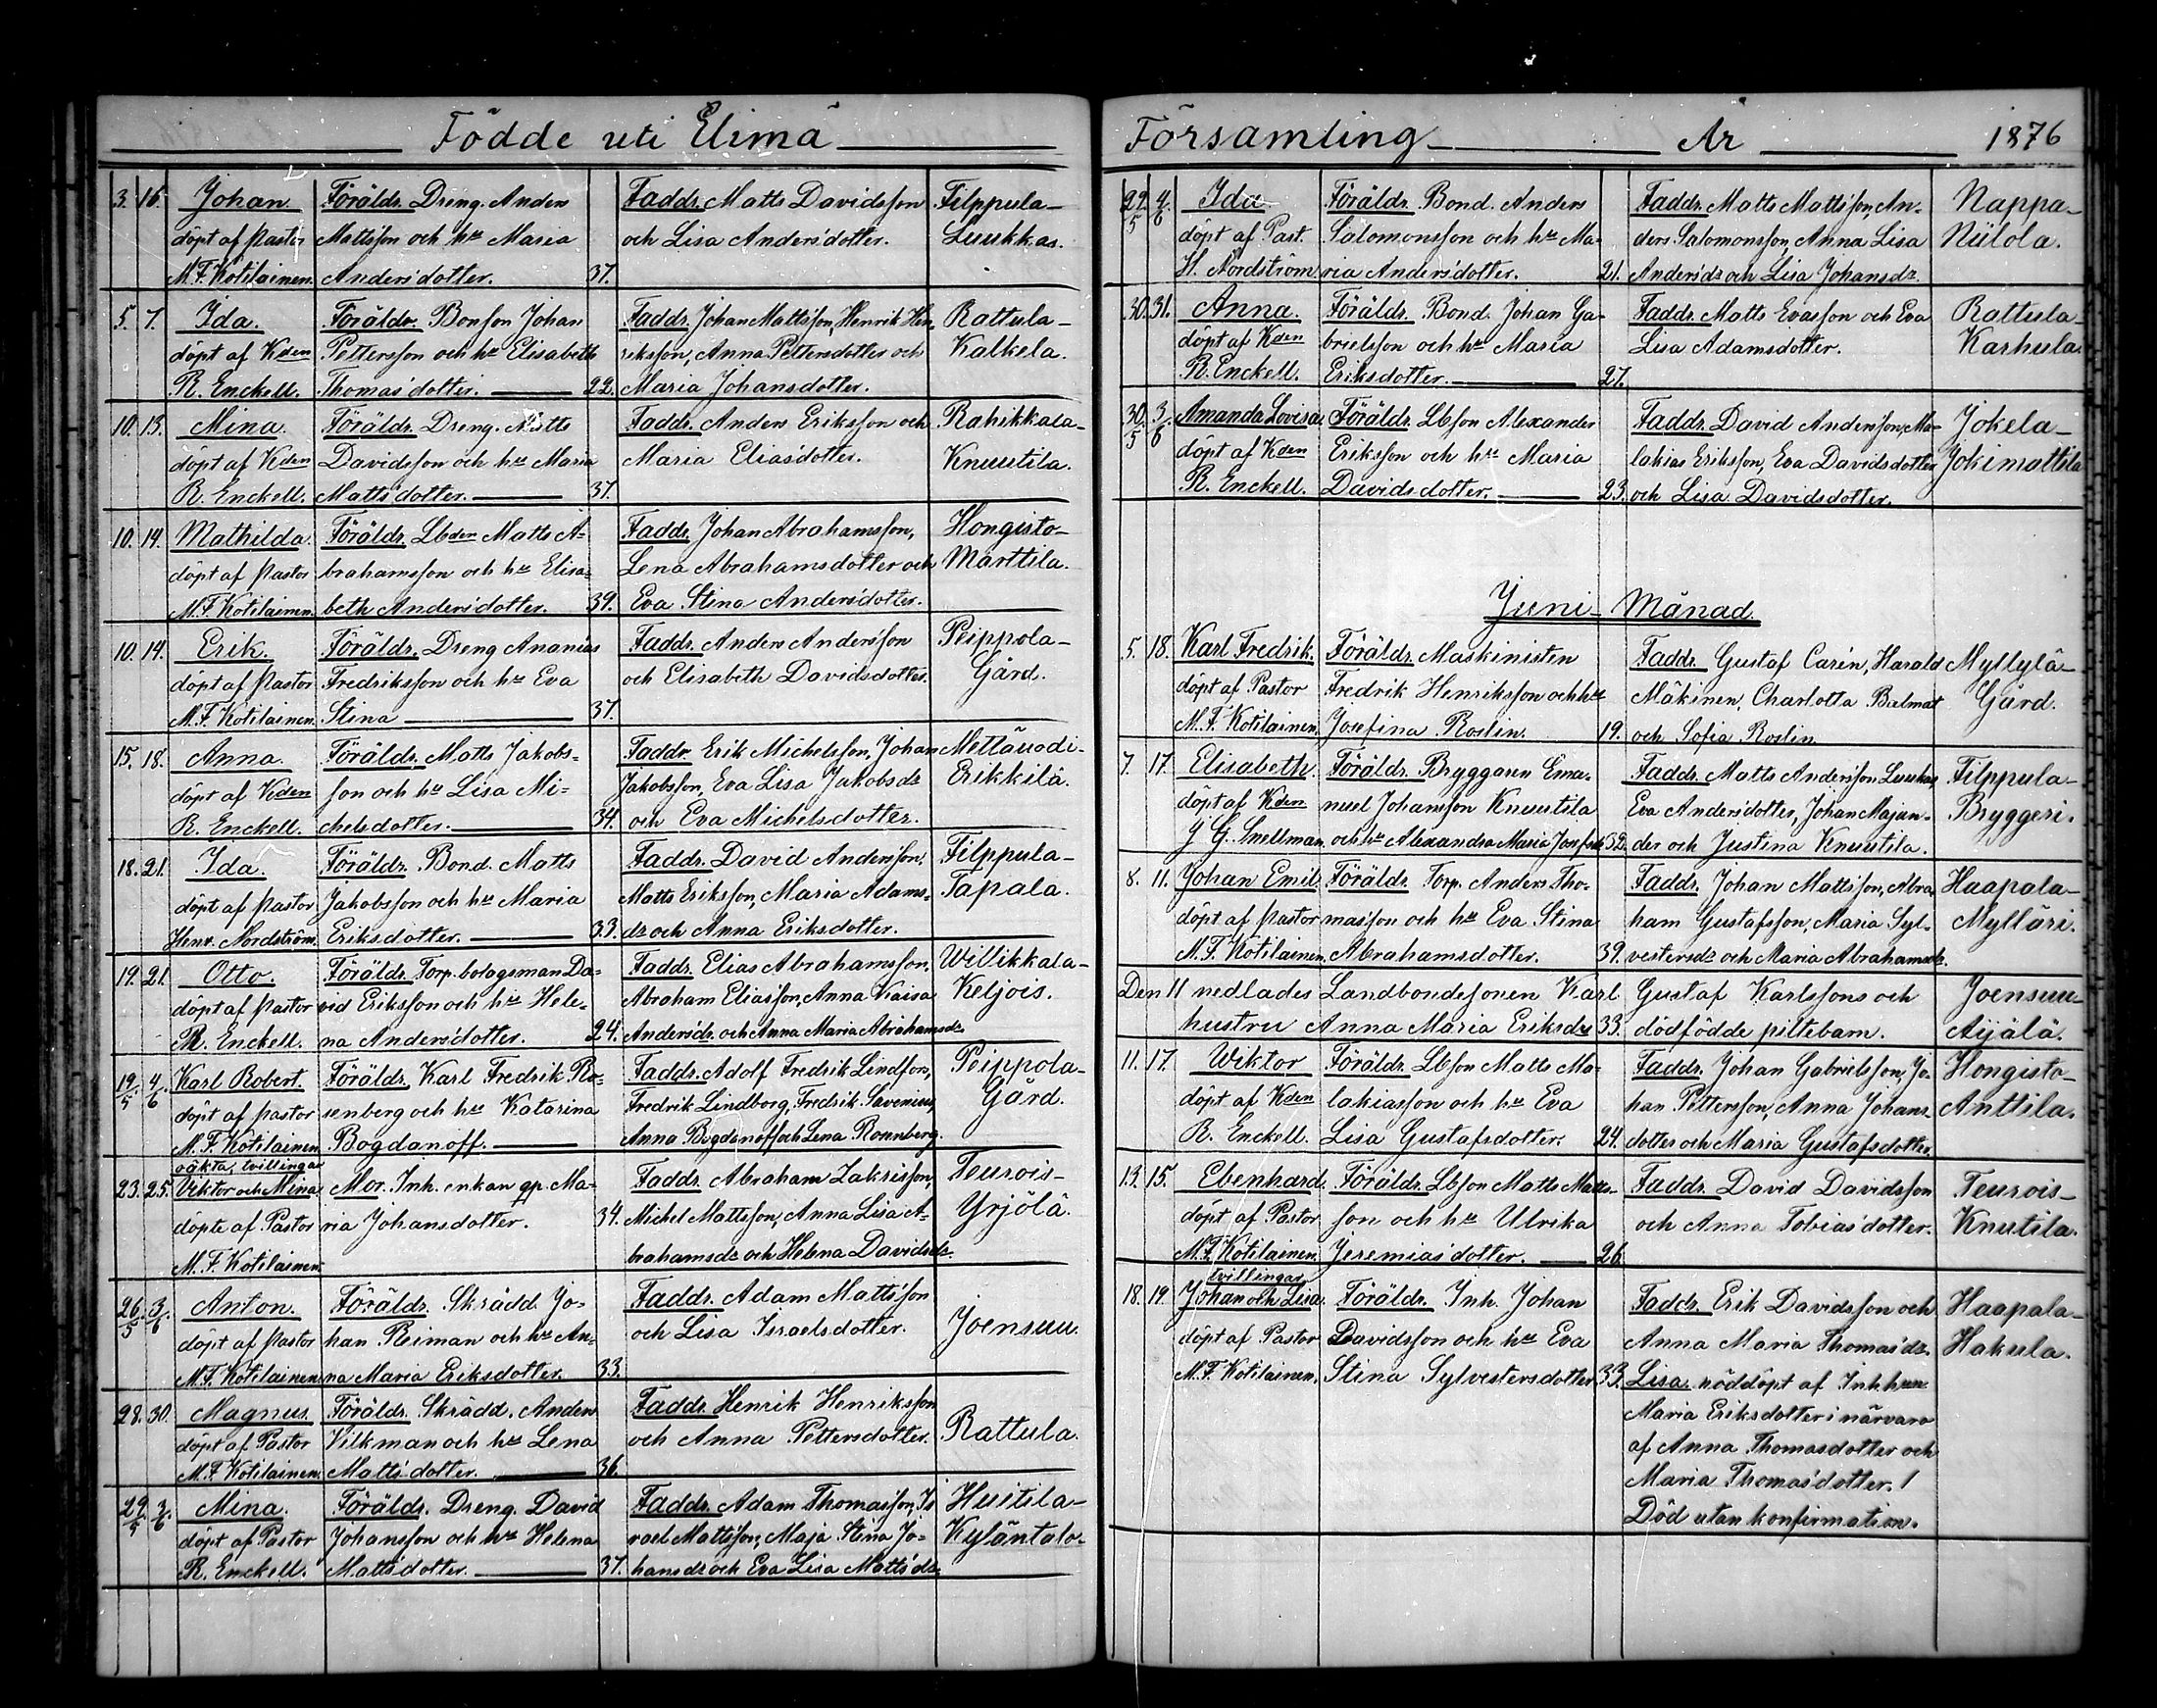 Födde uti Elimä
3. 16. Johan. Föräldr. Dreng. Anders Faddr. Matts Davidsson Filppula-
döpt af Pastor Mattsson och hu Maria och Lisa Andersdotter. Luukkas.
M.F. Kotilainen. Andersdotter. 37.
5. 7. Ida. Föräldr. Bonson Johan Faddr. Johan Mattsson, Henrik Hen- Rattula-
döpt af Kden Pettersson och hu Elisabeth riksson, Anna Pettersdotter och Kalkela.
R. Enckell. Thomasdotter. 22. Maria Johansdotter.
10. 13. Mina. Föräldr. Dreng. Matts Faddr. Anders Eriksson och Rahikkala-
döpt af Kden Davidsson och hu Maria Maria Eliasdotter. Knuutila.
R. Enckell. Mattsdotter. 37.
10. 14. Mathilda. Föräldr. Lbden Matts A- Faddr. Johan Abrahamsson, Hongisto-
döpt af Pastor brahamsson och hu Elisa- Lena Abrahamsdotter och Marttila.
M.F. Kotilainen. beth Andersdotter. 39. Eva Stina Andersdotter.
10. 14. Erik. Föräldr. Dreng Ananias Faddr. Anders Andersson Peippola-
döpt af Pastor Fredriksson och hu Eva och Elisabeth Davidsdotter. Gård.
M.F. Kotilainen. Stina 37.
15. 18. Anna. Föräldr. Matts Jakobs- Faddr. Erik Michelsson, Johan Mettäuodi-
döpt af Kden son och hu Lisa Mi- Jakobsson, Eva Lisa Jakobsdr Erikkilä.
R. Enckell. chelsdotter. 34. och Eva Michelsdotter.
18. 21. Ida. Föräldr. Bond. Matts Faddr. David Andersson, Filppula-
döpt af Pastor Jakobsson och hu Maria Matts Eriksson, Maria Adams- Tapala.
Henr. Nordström. Eriksdotter. 33. dr och Anna Eriksdotter.
19. 21. Otto. Föräldr. Torp. bolagsman Da- Faddr. Elias Abrahamsson, Willikkala-
döpt af Pastor vid Eriksson och hu Hele- Abraham Eliasson, Anna Kaisa Keljois.
R. Enckell. na Andersdotter. 24. Andersdr och Anna Maria Abrahamsdr
19/5 4/6 Karl Robert. Föräldr. Karl Fredrik Ro- Faddr. Adolf Fredrik Lindfors, Peippola-
döpt af pastor senberg och hu Katarina Fredrik Lindborg, Fredrik Savenius, Gård.
M.F. Kotilainen Bogdanoff. Anna Bogdanoff och Lena Ronnberg.
oäkta, tvillingar
23. 25. Viktor och Mina Mor. Inh. enkan Ma- Faddr. Abraham Zakrisson, Teurois-
döpte af Pastor ria Johansdotter. 34. Michel Mattsson, Anna Lisa A- Yrjölä.
M.F. Kotilainen. brahamsdr och Helena Davidsdr.
26/5 3/6 Anton. Föräldr. Skrädd. Jo- Faddr. Adam Mattsson
döpt af Pastor han Reiman och hu An- och Lisa Israelsdotter. Joensuu.
M.F. Kotilainen na Maria Eriksdotter. 33.
28. 30. Magnus. Föräldr. Skrädd. Anders Faddr. Henrik Henriksson
döpt af Pastor Vilkman och hu Lena och Anna Pettersdotter. Rattula.
M.F. Kotilainen. Mattsdotter. 36.
29/5 3/6 Mina. Föräldr. Dreng. David Faddr. Adam Thomasson, Is Huitila-
döpt af Pastor Johansson och hu Helena rael Mattsson, Maja Stina Jo- Kyläntalo.
R. Enckell. Mattsdotter. 37. hansdr och Eva Lisa Mattsdr.
Församling År 1876
29/5 4/6 Ida Föräldr. Bond. Anders Faddr. Matts Mattsson, An- Nappa-
döpt af Past. Salomonsson och hu Ma- ders Salomonsson, Anna Lisa Niilola.
H. Nordström ria Andersdotter. 21. Andersdr och Lisa Johansdr.
30. 31. Anna. Föräldr. Bond. Johan Ga- Faddr. Matts Evasson och Eva Rattula-
döpt af Kden brielsson och hu Maria Lisa Adamsdotter. Karhula.
R. Enckell. Eriksdotter. 27.
30/5 3/6 Amanda Lovisa. Föräldr. Lbson Alexander Faddr. David Andersson, Ma- Jokela-
döpt af Kden Eriksson och hu Maria lakias Eriksson, Eva Davidsdotter Jokimattila
R. Enckell. Davidsdotter. 23. och Lisa Davidsdotter.
Juni- Månad.
5. 18. Karl Fredrik. Föräldr. Maskinisten Faddr. Gustaf Carén, Harald Myllylä-
döpt af Pastor Fredrik Henriksson och hu Mäkinen, Charlotta Balmat Gård.
M.F. Kotilainen, Josefina Roslin. 19. och Sofia Roslin.
7. 17. Elisabeth. Föräldr. Bryggaren Ema- Faddr. Matts Andersson Luukas, Filppula-
döpt af Kden nuel Johansson Knuutila Eva Andersdotter, Johan Majan- Bryggeri.
J G. Snellman. och hu Alexandra Maria 32. der och Justina Knuutila.
8. 11. Johan Emil. Föräldr. Torp. Anders Tho- Faddr. Johan Mattsson, Abra- Haapala-
döpt af Pastor masson och hu Eva Stina ham Gustafsson, Maria Syl- Mylläri.
M.F. Kotilainen. Abrahamsdotter. 39. vestersdr och Maria Abrahamsdr.
Den 11 nedlades Landbondesonen Karl Gustaf Karlssons och Joensuu-
hustru Anna Maria Eriksdrs 33. dödfödde piltebarn. Äijälä.
11. 17. Wiktor Föräldr. Lbson Matts Ma- Faddr. Johan Gabrielsson, Jo- Hongisto-
döpt af Kden lakiasson och hu Eva han Pettersson, Anna Johans Anttila.
R. Enckell. Lisa Gustafsdotter. 24. dotter och Maria Gustafsdotter.
13. 15. Ebenhard. Föräldr. Lbson Matts Matts- Faddr. David Davidsson Teurois-
döpt af Pastor son och hu Ulrika och Anna Tobiasdotter. Knutila.
M.F. Kotilainen. Jeremiasdotter. 26.
tvillingar
18. 19. Johan och Lisa. Föräldr. Inh. Johan Faddr. Erik Davidsson och Haapala-
döpt af Pastor Davidsson och hu Eva Anna Maria Thomasdr. Hakula.
M.F. Kotilainen. Stina Sylvestersdotter 33. Lisa nöddöpt af Inh hun
Maria Eriksdotter i närvaro
af Anna Thomasdotter och
Maria Thomasdotter. /
Död utan konfirmation.